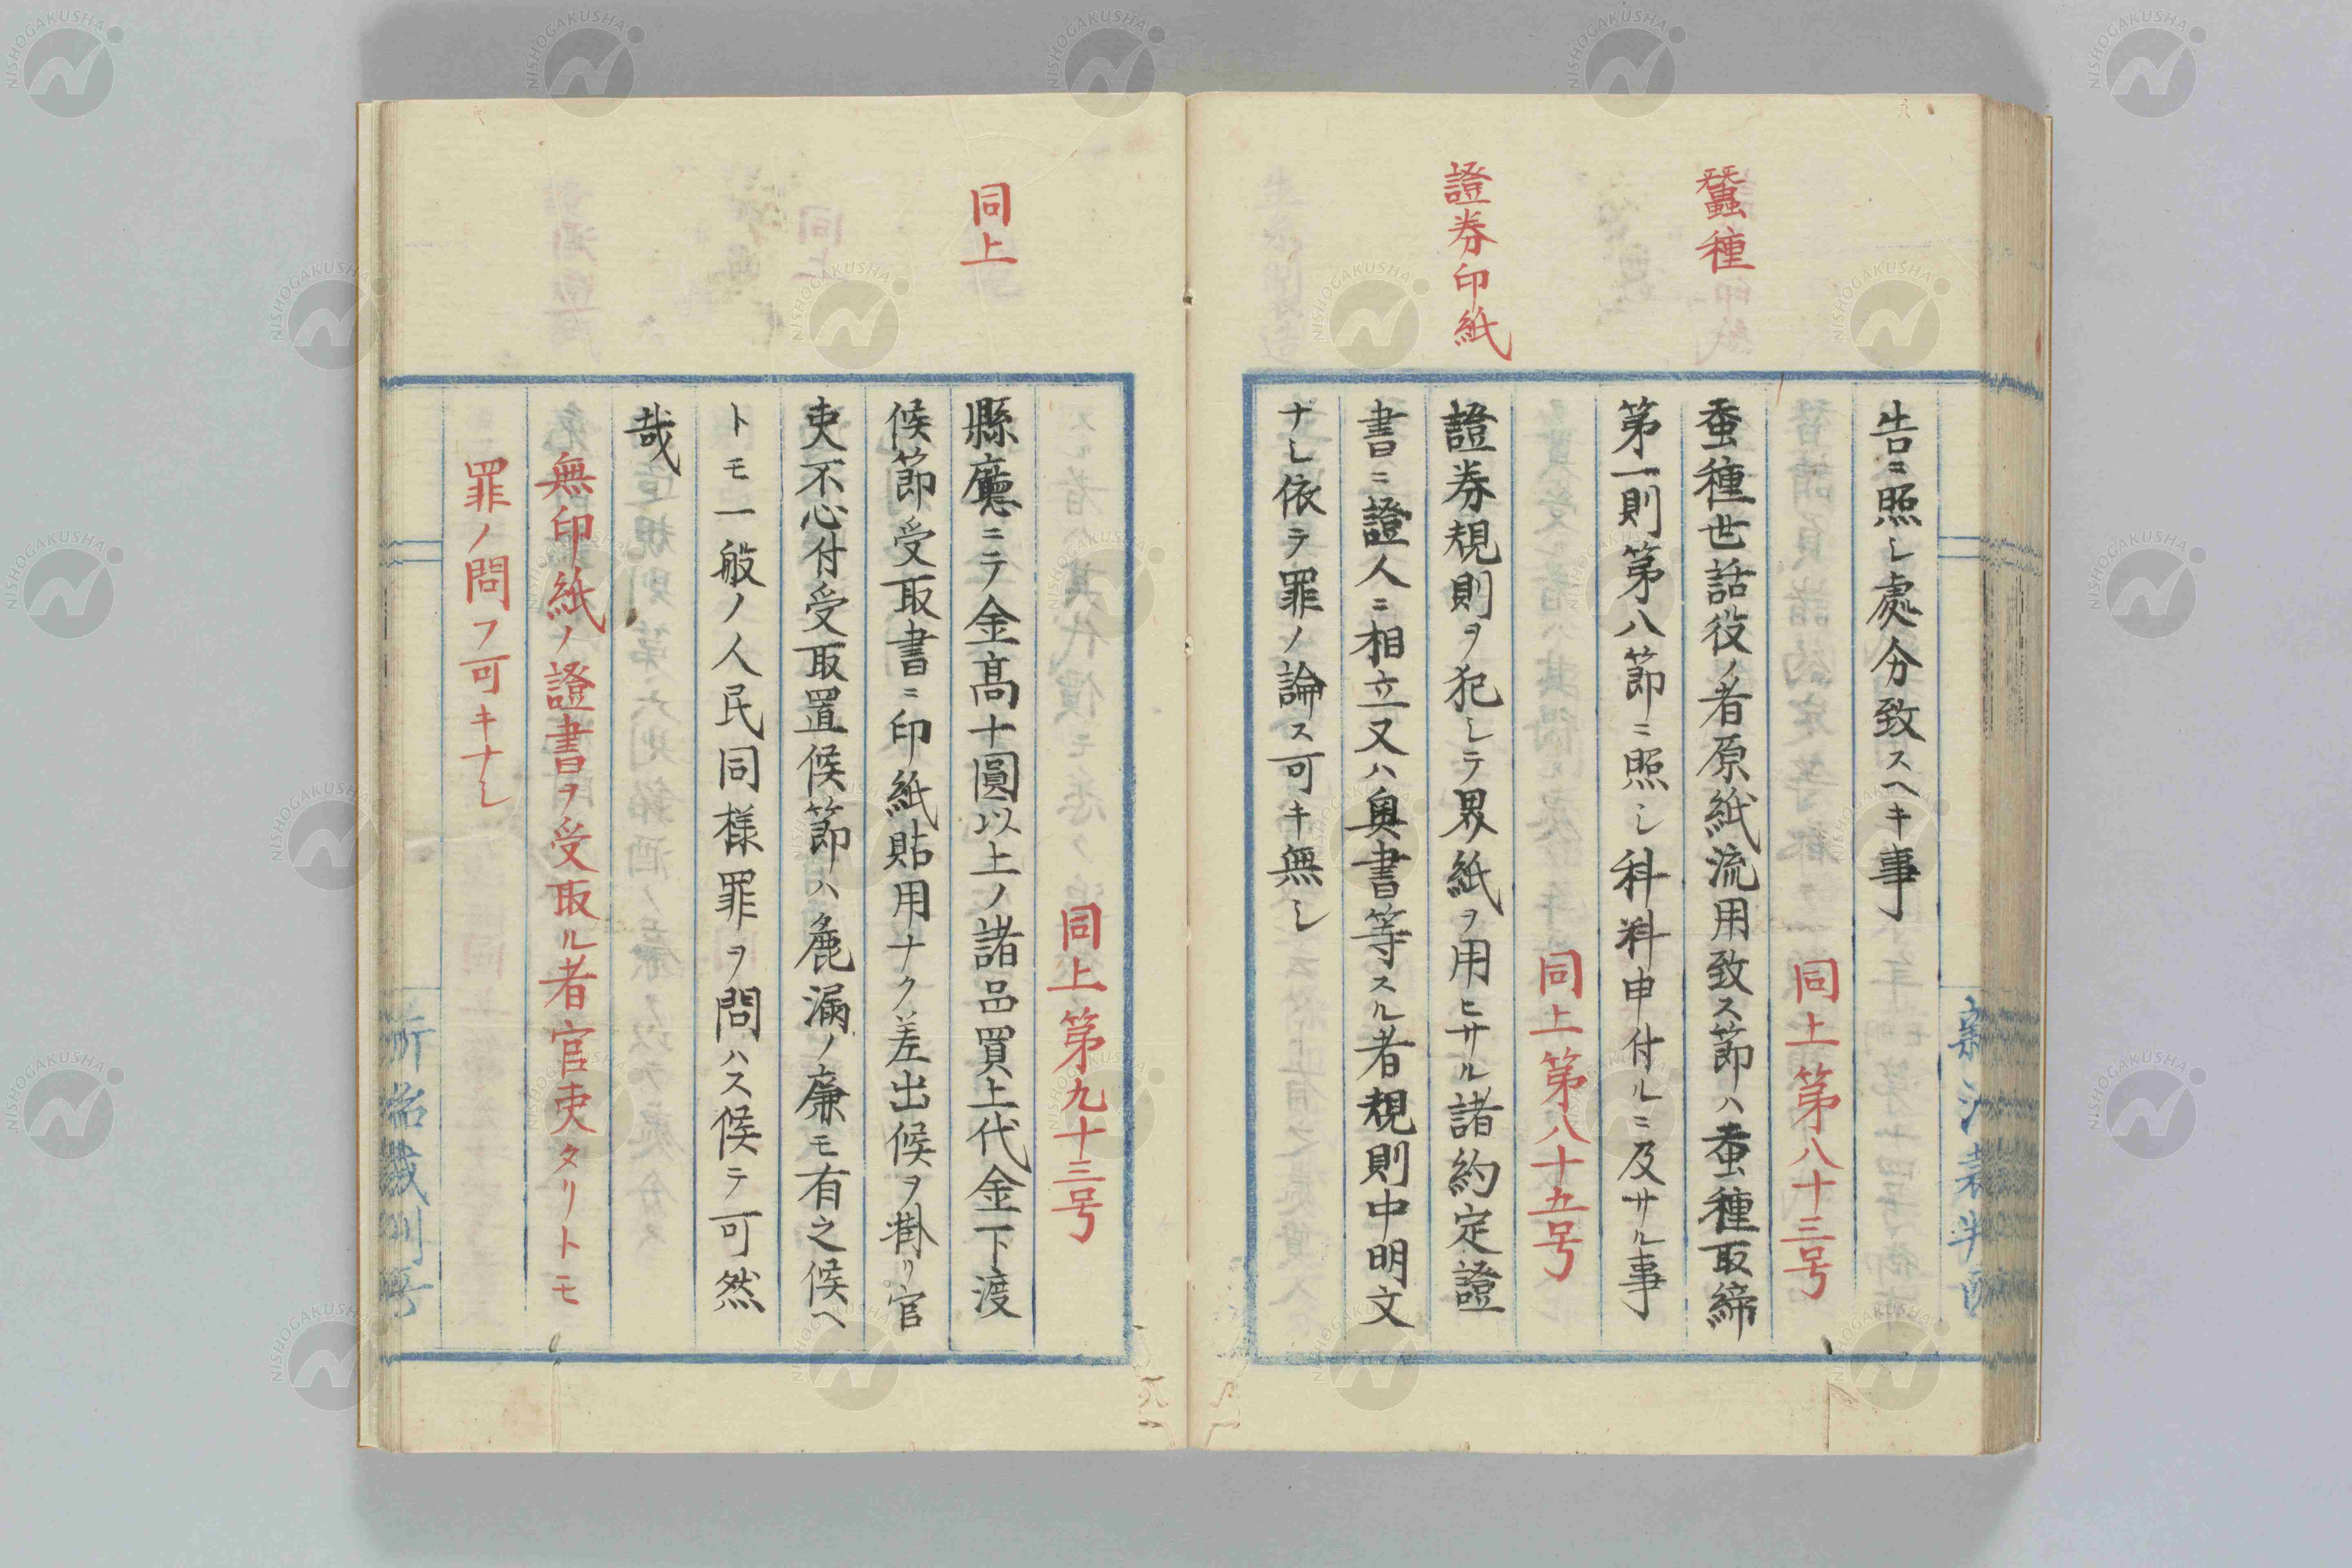 告ニ照シ處分致スヘキ事
同上第八十三号
蠶種
蚕種世話役ノ者原紙流用致ス節ハ蚕種取締
第一則第八節ニ照シ科料申付ルニ及サル事
同上第八十五号
證券印紙
證券規則ヲ犯シテ界紙ヲ用ヒサル諸約定證
書ニ證人ニ相立又ハ奥書等スル者規則中明文
ナシ依テ罪ノ論ス可キ無シ
同上第九十三号
同上
縣廳ニテ金髙十圓以上ノ諸品買上代金下渡
候節受取書ニ印紙貼用ナク差出候ヲ掛リ官
吏不心付受取置候節ハ麁漏ノ廉モ有之候ヘ
トモ一般ノ人民同様罪ヲ問ハス候テ可然
哉
無印紙ノ證書ヲ受取ル者官吏タリトモ
罪ノ問フ可キナシ
NISHOGAKUSHA